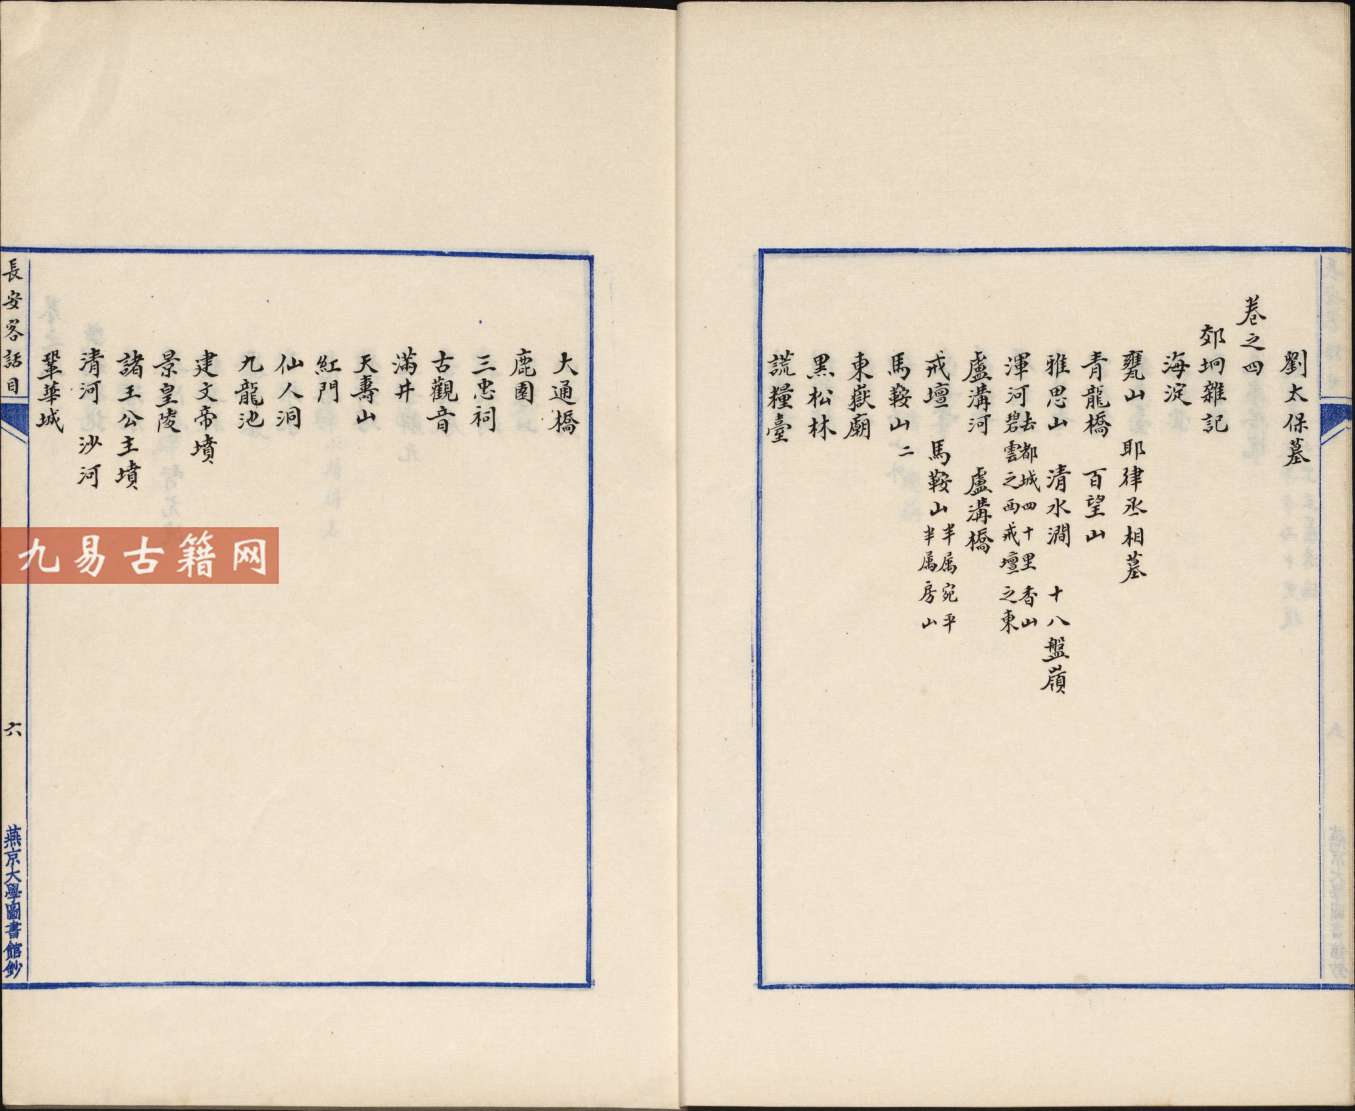 劉太保墓
卷之四
郊坰雜記
海淀
甕山 耶律丞相墓
青龍橋 百望山
雅思山 清水澗 十八盤嶺
渾河 去都城四十里香山
碧雲之西戒壇之東
盧溝河 盧溝橋
戒壇 馬鞍山 半属宛平
半属房山
馬鞍山二
東嶽廟
黑松林
謊糧臺
大通橋
鹿園
三忠祠
古觀音
滿井
天壽山
紅門
仙人洞
九龍池
建文帝墳
景皇陵
諸王公主墳
清河 沙河
鞏華城
長安客話目
六
燕京大學圖書館鈔
九易古籍网